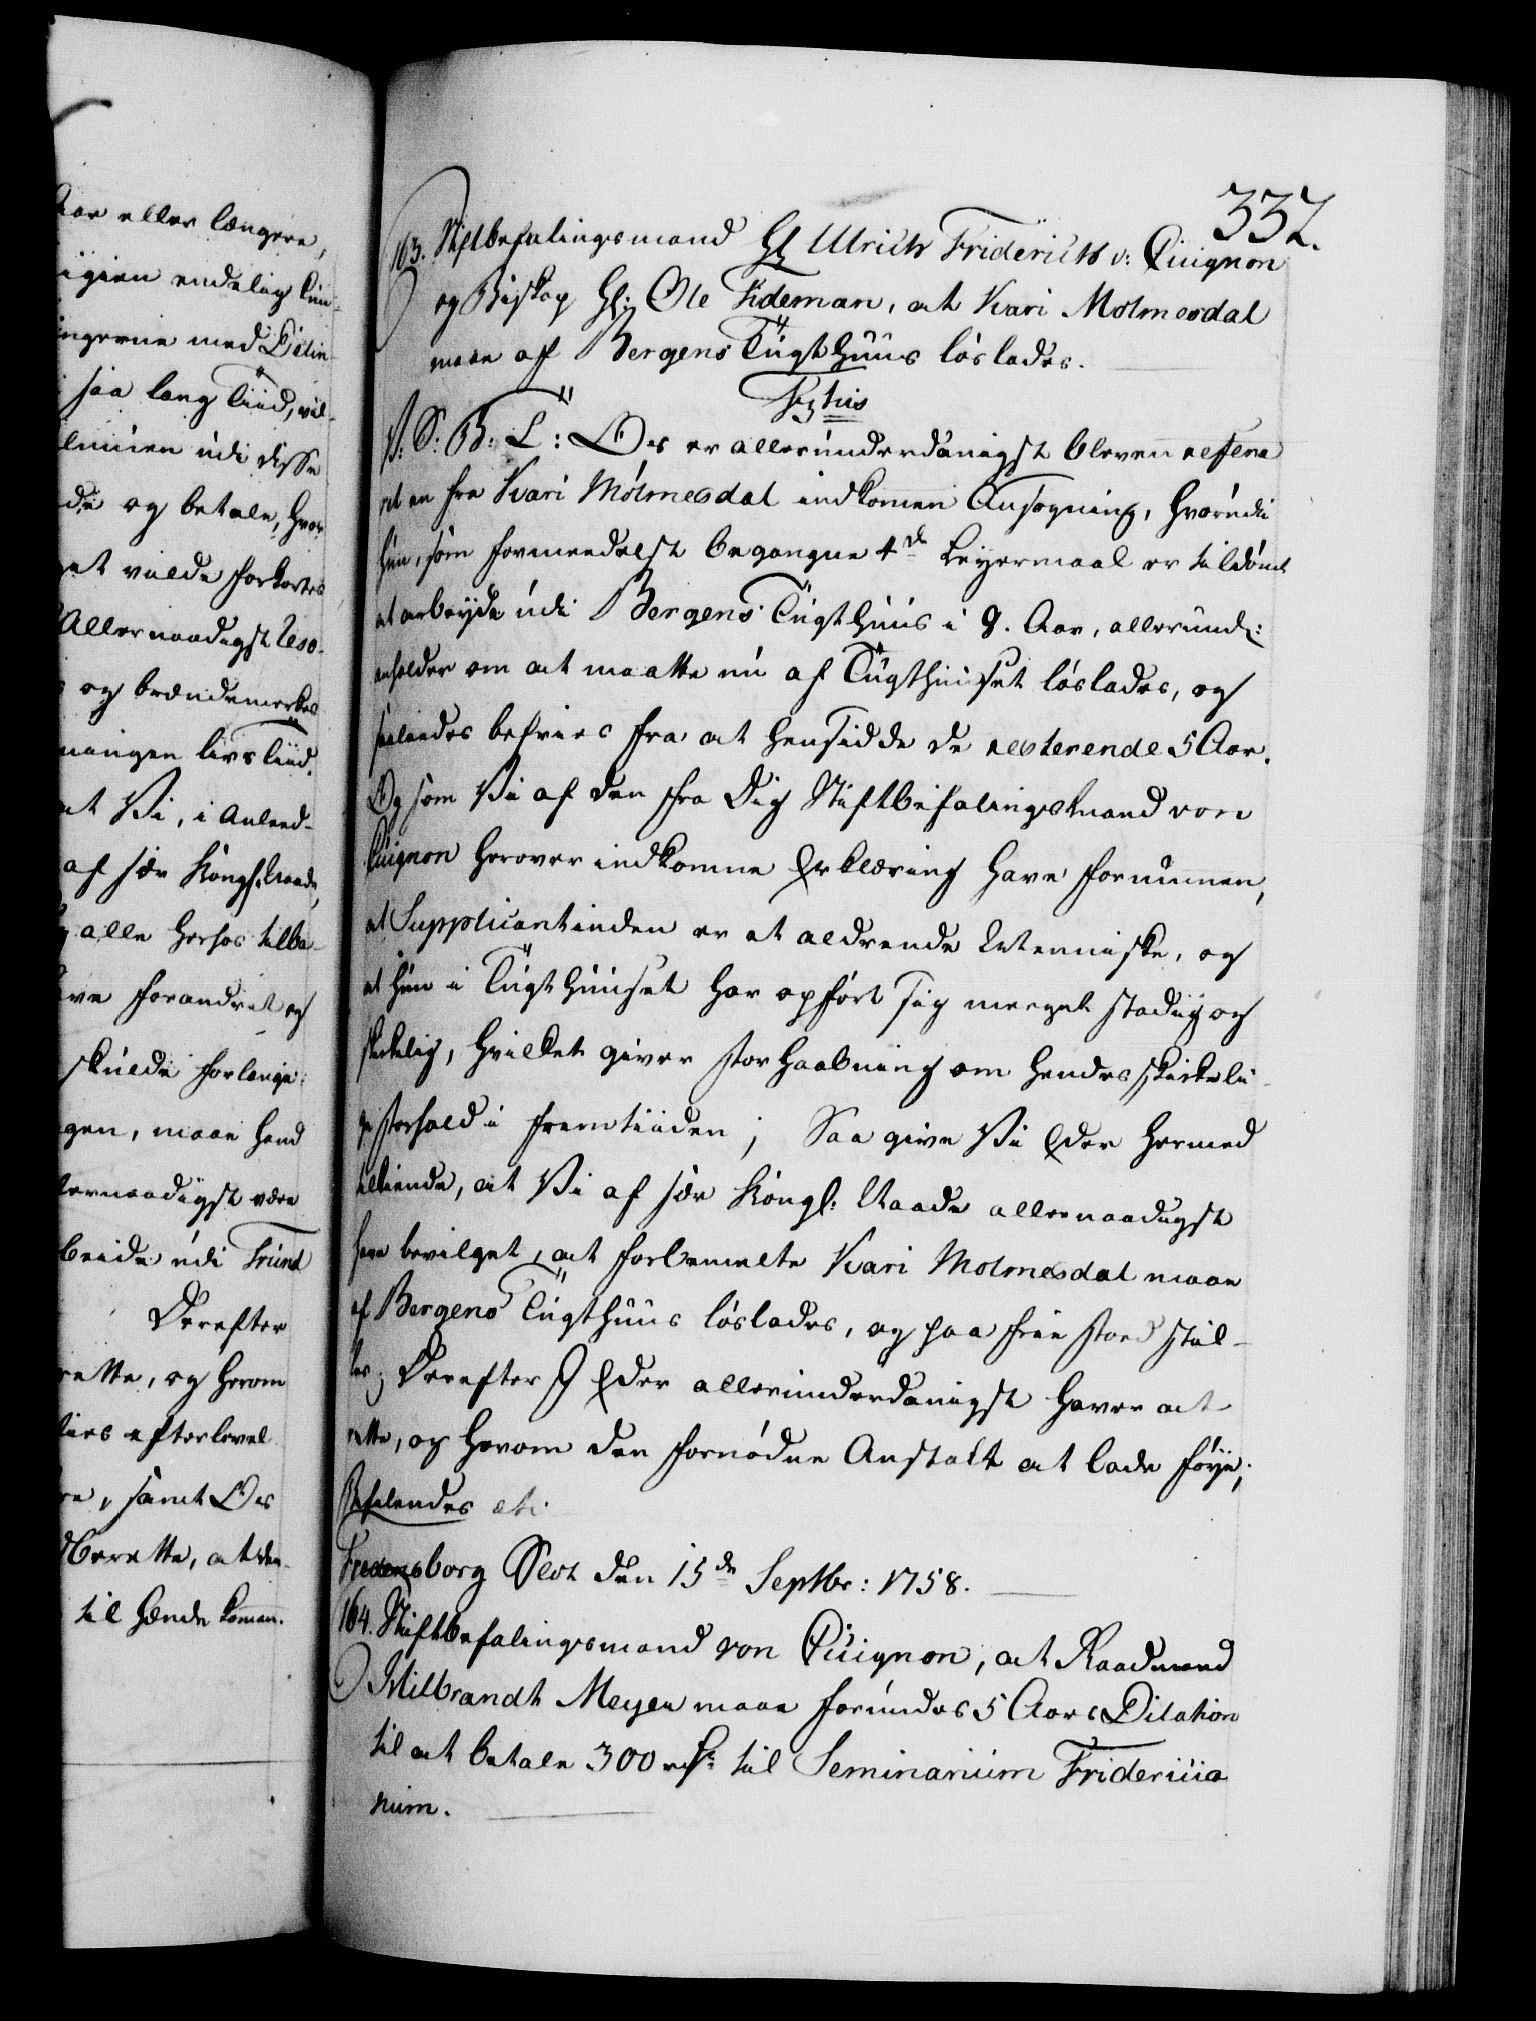 Aar eller længere,
igien endelig kun-
ingerne med Qvitin-
saa lang Tiid, vil-
udi disse
de og betale, hvor
et vilde forkortes
Allernaadigst Reso-
og brændemerkes
ningen livstiid.
at Vi, i Anleed-
af sær Kongl: Naade,
alle herhos tilba-
ve forandret og
skulde forlange
gen, maae hand
lernaadigst være
beide udi Trund
Derefter
rette, og herom
tiids efterlevel
re, samt Os
dberette, at den
til Hænde kommen.
337.
163. Stiftbefalingsmand Hr Ulrich Friderich v: Cicignon
og Biskop Hr: Ole Tideman, at Kari Molmesdal
maae af Bergens Tugthuus løslades.
F: 5. B: L: Os er allerunderdanigst bleven refere
ret en fra Kari Mólmesdal indkommen Ansøgning, hvorudi
hun, som formeedelst begangne 4de Leyermaal er tildømt
at arbeyde udi Bergens Tugthuus i 9. Aar, allerund:
anholder om at maatte nu af Tugthuuset løslades, og
saaledes befries fra at hensidde de resterende 5 Aar.
Og som Vi af den fra Dig Stiftbefalingsmand von
Cicignon herover indkomne Erklæring have fornummen,
at Supplicantinden er et aldrende Menniske, og
at hun i Tugthuuset har opført sig meeget stadig og
skikkelig, hvilket giver stor Haabning om hendes skikkeli-
ge Forhold i Fremtiiden; Saa give Vi Eder hermed
tilkiende, at Vi af sær Kongl: Naade allernaadigst
have bevilget, at forbemelte Kari Molmesdal maae
af Bergens Tugthuus løslades, og paa frie Foed stil-
les; Derefter I Eder allerunderdanigst haver at
rette, og herom den fornødne Anstalt at lade føye;
Befalendes etc.
Fredensborg Slot den 15de Septbr: 1758.
164. Stiftbefalingsmand von Cicignon, at Raadmand
Hilbrandt Meyer maae forundes 5 Aars Dilation
til at betale 300 rdr: til Seminarium Fridericia
num.